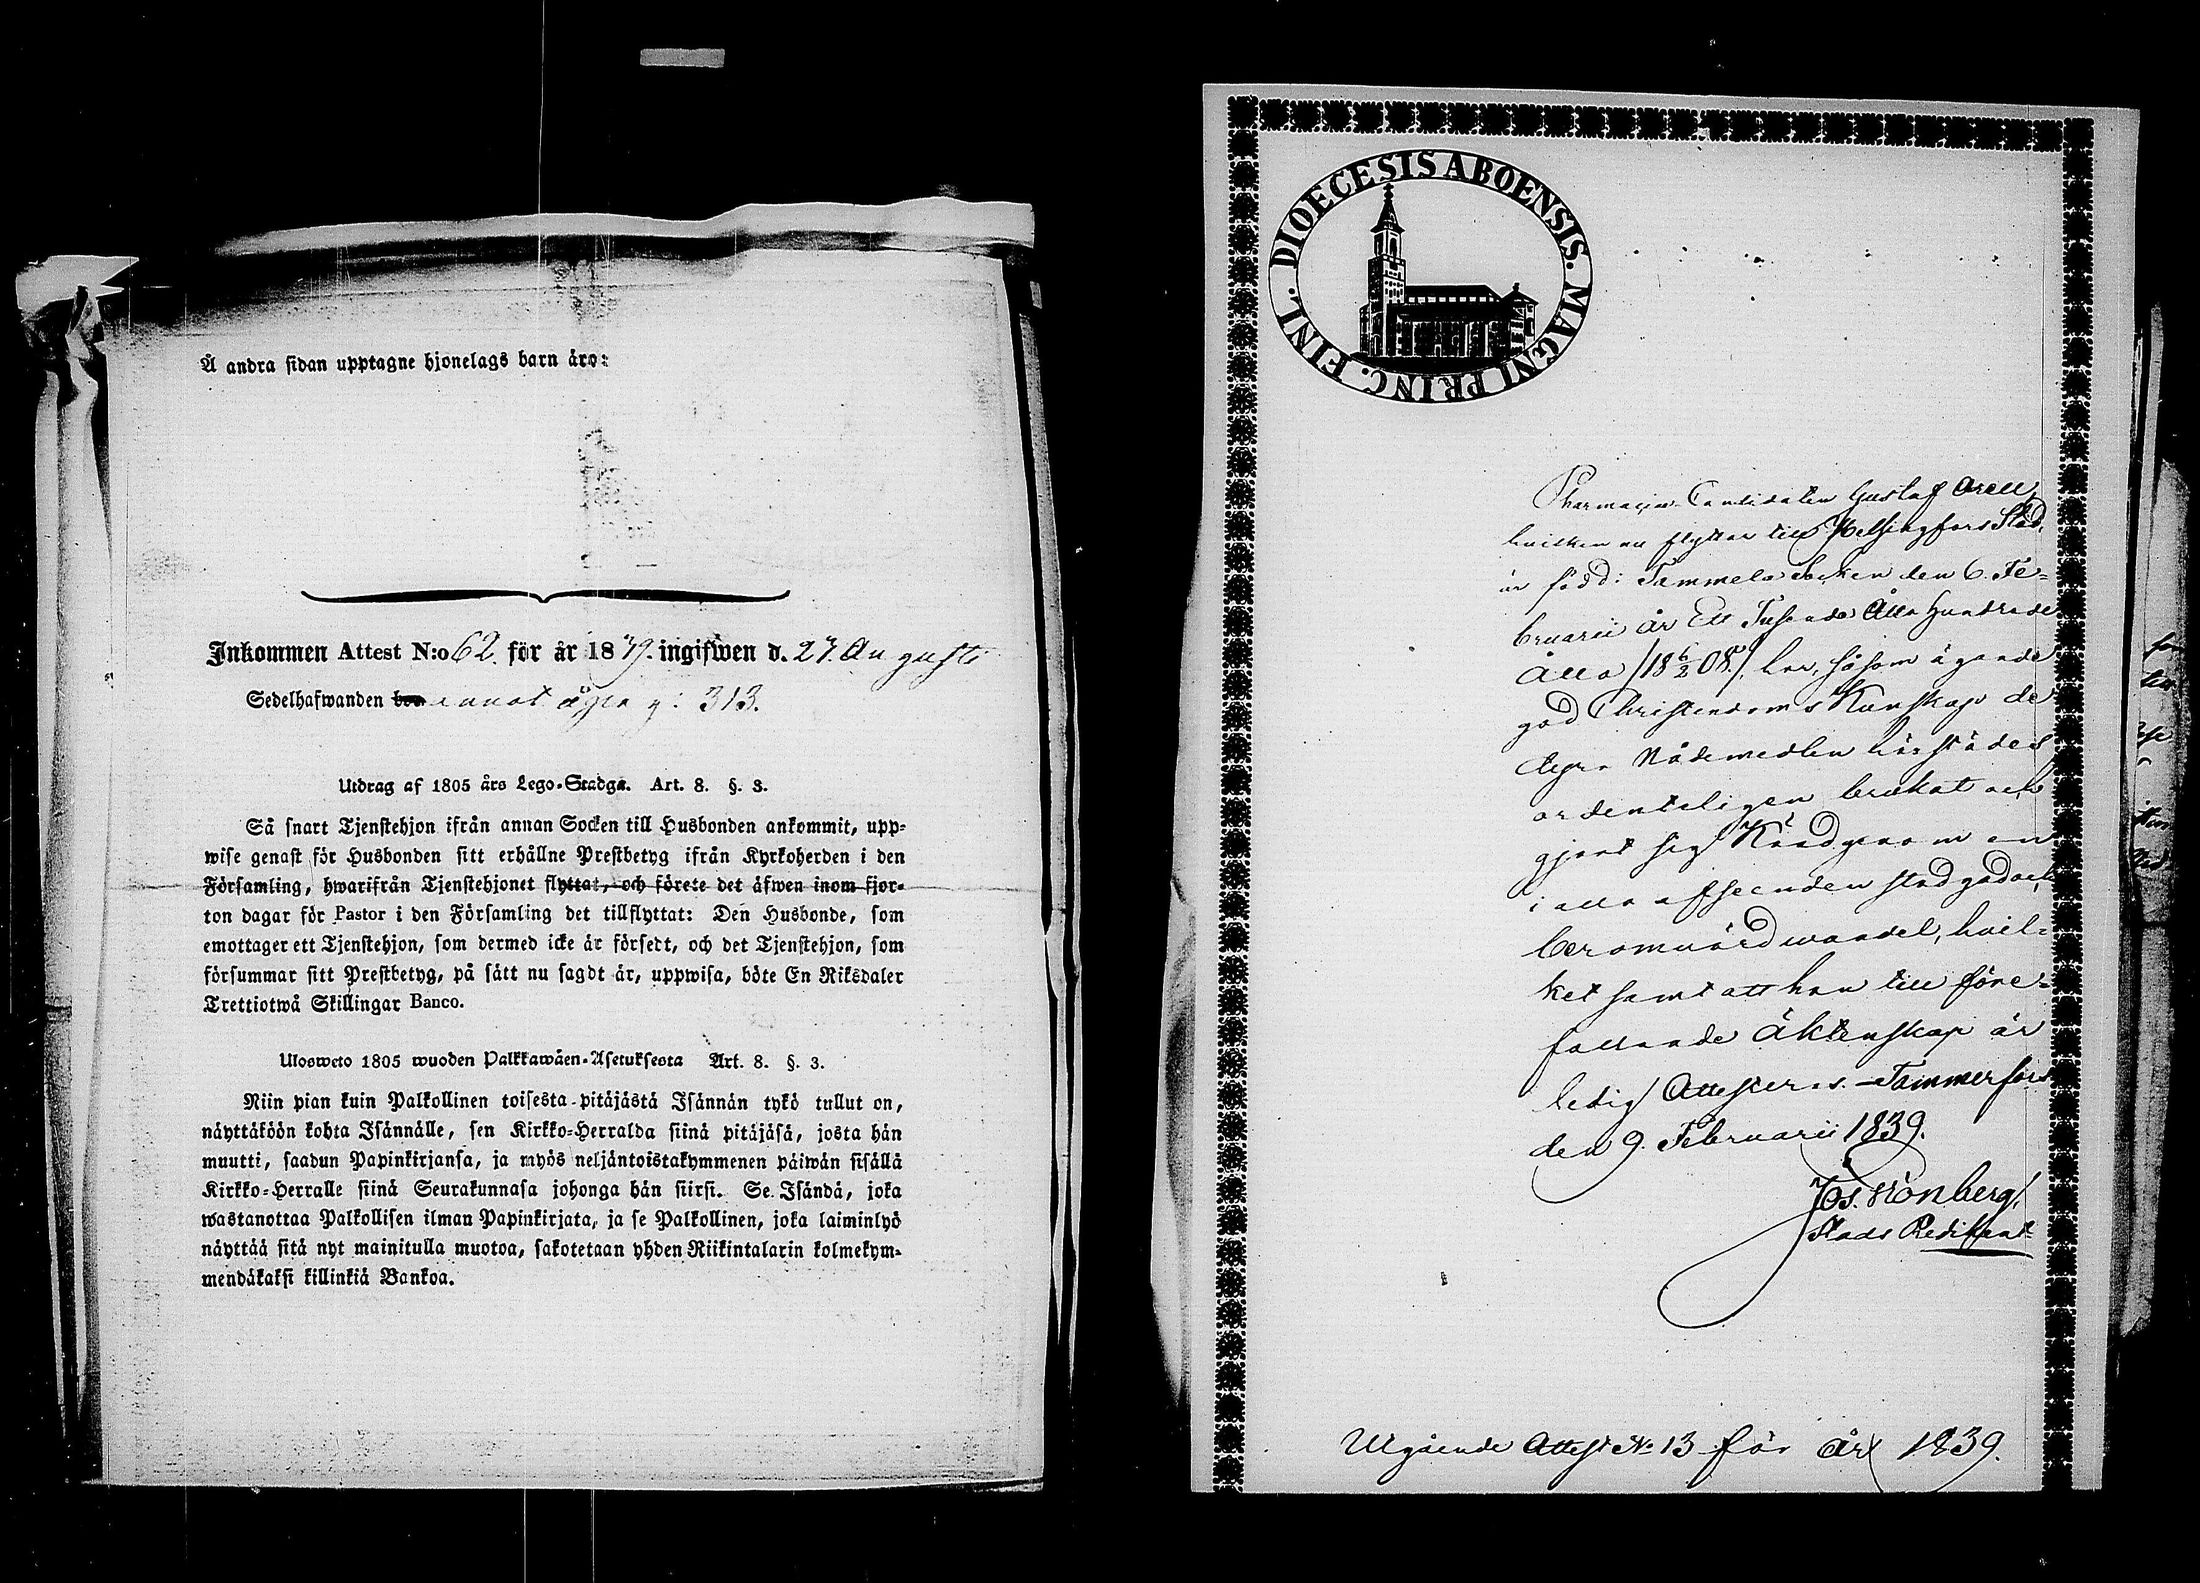 Å andra sidan upptagne hjonelags barn äro:
Inkommen Attest N:o 62. för år 1839. ingifwen d. 27. Augusti
Sedelhafwanden annat ägen 313.
Utdrag af 1805 års Lego-Stadga. Art. 8. §. 3.
Så snart Tjenstehjon ifrån annan Socken till Husbonden ankommit, upp-
wise genast för Husbonden sitt erhållne Prestbetyg ifrån Kyrkoherden i den
Församling, hwarifrån Tjenstehjonet flyttat, och förete det äfwen inom fjor-
ton dagar för Pastor i den Församling det tillflyttat: Den Husbonde, som
emottager ett Tjenstehjon, som dermed icke är försedt, och det Tjenstehjon, som
försummar sitt Prestbetyg, på sätt nu sagdt är, uppwisa, böte En Riksdaler
Trettiotwå Skillingar Banco.
Ulosweto 1805 wuoden Palkkawäen-Asetuksesta Art. 8. §. 3.
Niin pian kuin Palkollinen toisesta pitäjästä Isännän tykö tullut on,
näyttäköön kohta Isännälle, sen Kirkko-Herralda siinä pitäjäsä, josta hän
muutti, saadun Papinkirjansa, ja myös neljäntoistakymmenen päiwän sisällä
Kirkko-Herralle siinä Seurakunnasa johonga hän siirsi. Se Isändä, joka
wastanottaa Palkollisen ilman Papinkirjata, ja se Palkollinen, joka laiminlyö
näyttää sitä nyt mainitulla muotoa, sakotetaan yhden Riikintalarin kolmekym-
mendäkaksi killinkiä Bankoa.
DIOECESIS ABOENSIS. MAGNI PRINC. FINL.
Pharmacie Candidaten Gustaf Orell,
hvilken nu flyttar till Helsingfors Stad,
är född i Tammela Socken den 6. Fe=
bruarii år Ett Tusende Åtta Hundrade
Åtta /18 6/2 08./, har, såsom ägande
god Christendoms Kunskap de
dyra Nådemedlen härstädes
ordenteligen brukat och
gjort sig känd genom en
i alla afseenden stadgad och
berömvärd vandel, hvil=
ket samt att han till före=
fallande äktenskap är
ledig Attesteras. Tammerfors
den 9. Februarii 1839.
Jos. Grönberg.
Stads Predikant
Utgående Attest No 13 för år 1839.